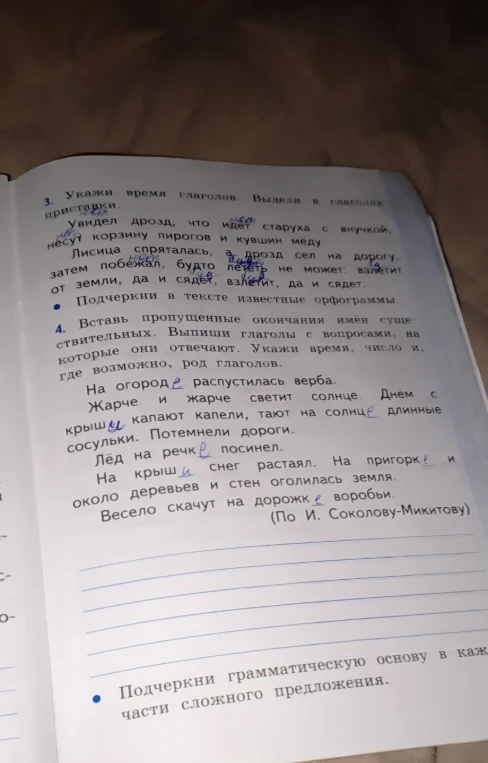 3. Укажи время глаголов. Выдели в глаголах
приставки.
Увидел дрозд, что идёт старуха с внучкой,
несут корзину пирогов и кувшин мёду.
Лисица спряталась, а дрозд сел на дорогу,
затем побежал, будто лететь не может: взлетит
от земли, да и сядет, взлетит, да и сядет.
• Подчеркни в тексте известные орфограммы.
4. Вставь пропущенные окончания имён суще-
ствительных. Выпиши глаголы с вопросами, на
которые они отвечают. Укажи время, число и,
где возможно, род глаголов.
На огороде распустилась верба.
Жарче и жарче светит солнце. Днем с
крыши капают капели, тают на солнце длинные
сосульки. Потемнели дороги.
Лёд на речке посинел.
На крыши снег растаял. На пригорке и
около деревьев и стен оголилась земля.
Весело скачут на дорожке воробьи.
(По И. Соколову-Микитову)
• Подчеркни грамматическую основу в каж
части сложного предложения.
с-
о-